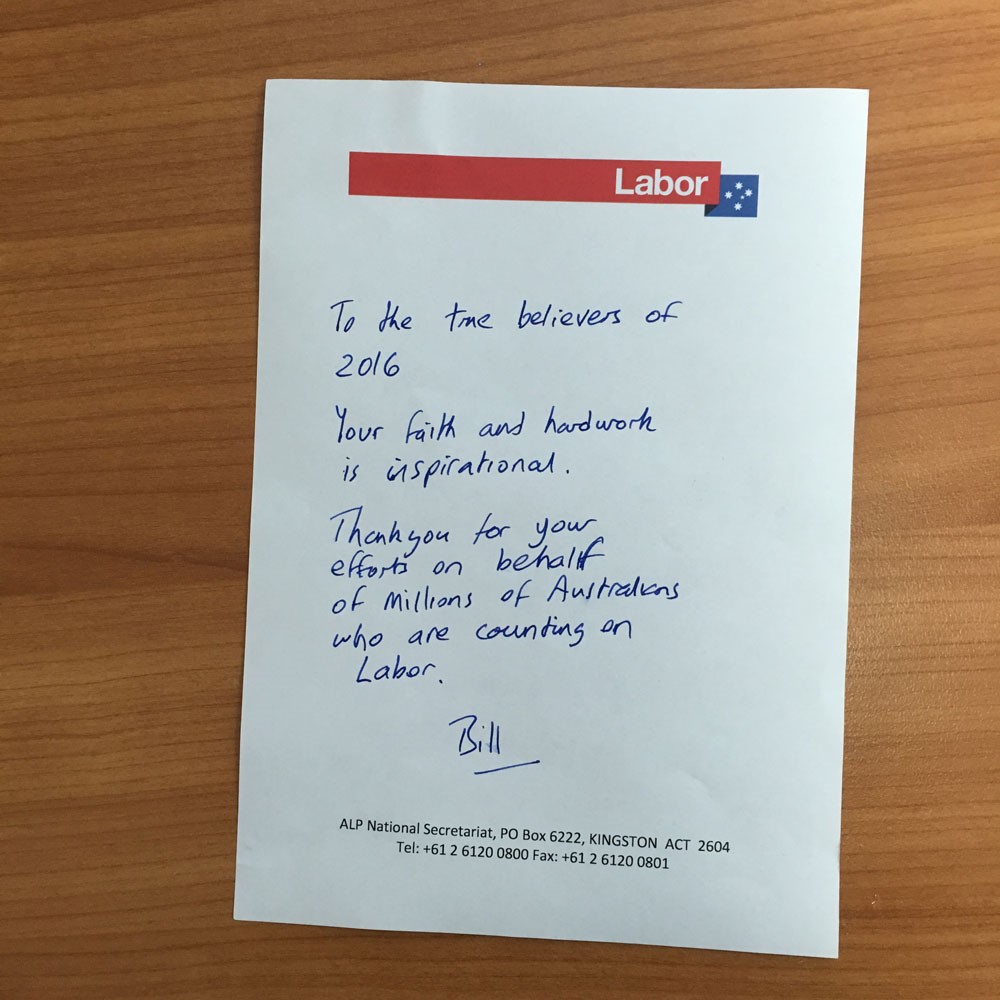 Labor
To the true believers of
2016
Your faith and hardwork
is inspirational.
Thankyou for your
efforts on behalf
of Millions of Australians
who are counting on
Labor.
Bill
ALP National Secretariat, PO Box 6222, KINGSTON ACT 2604
Tel: +61 2 6120 0800 Fax: +61 2 6120 0801